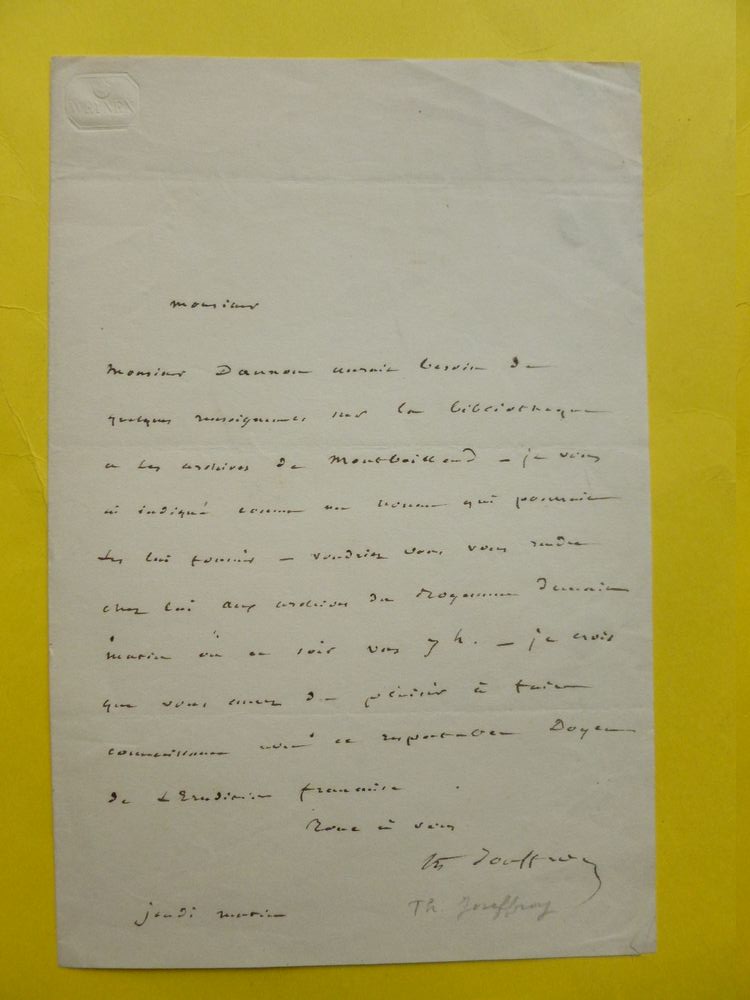 WEYNEN
monsieur
Monsieur Daunou aurait besoin de
quelques renseignemens sur la bibliothèque
et les archives de Montbeilland – je vous
ai indiqué comme un homme qui pourrait
les lui fournir – voudriez vous vous rendre
chez lui aux archives du Royaume demain
matin ou ce soir vers 7 h. – je crois
que vous aurez du plaisir à faire
connaissance avec ce respectable Doyen
de L'Erudition française
Tout à vous
Th Jouffroy
Th. Jouffroy
jeudi matin